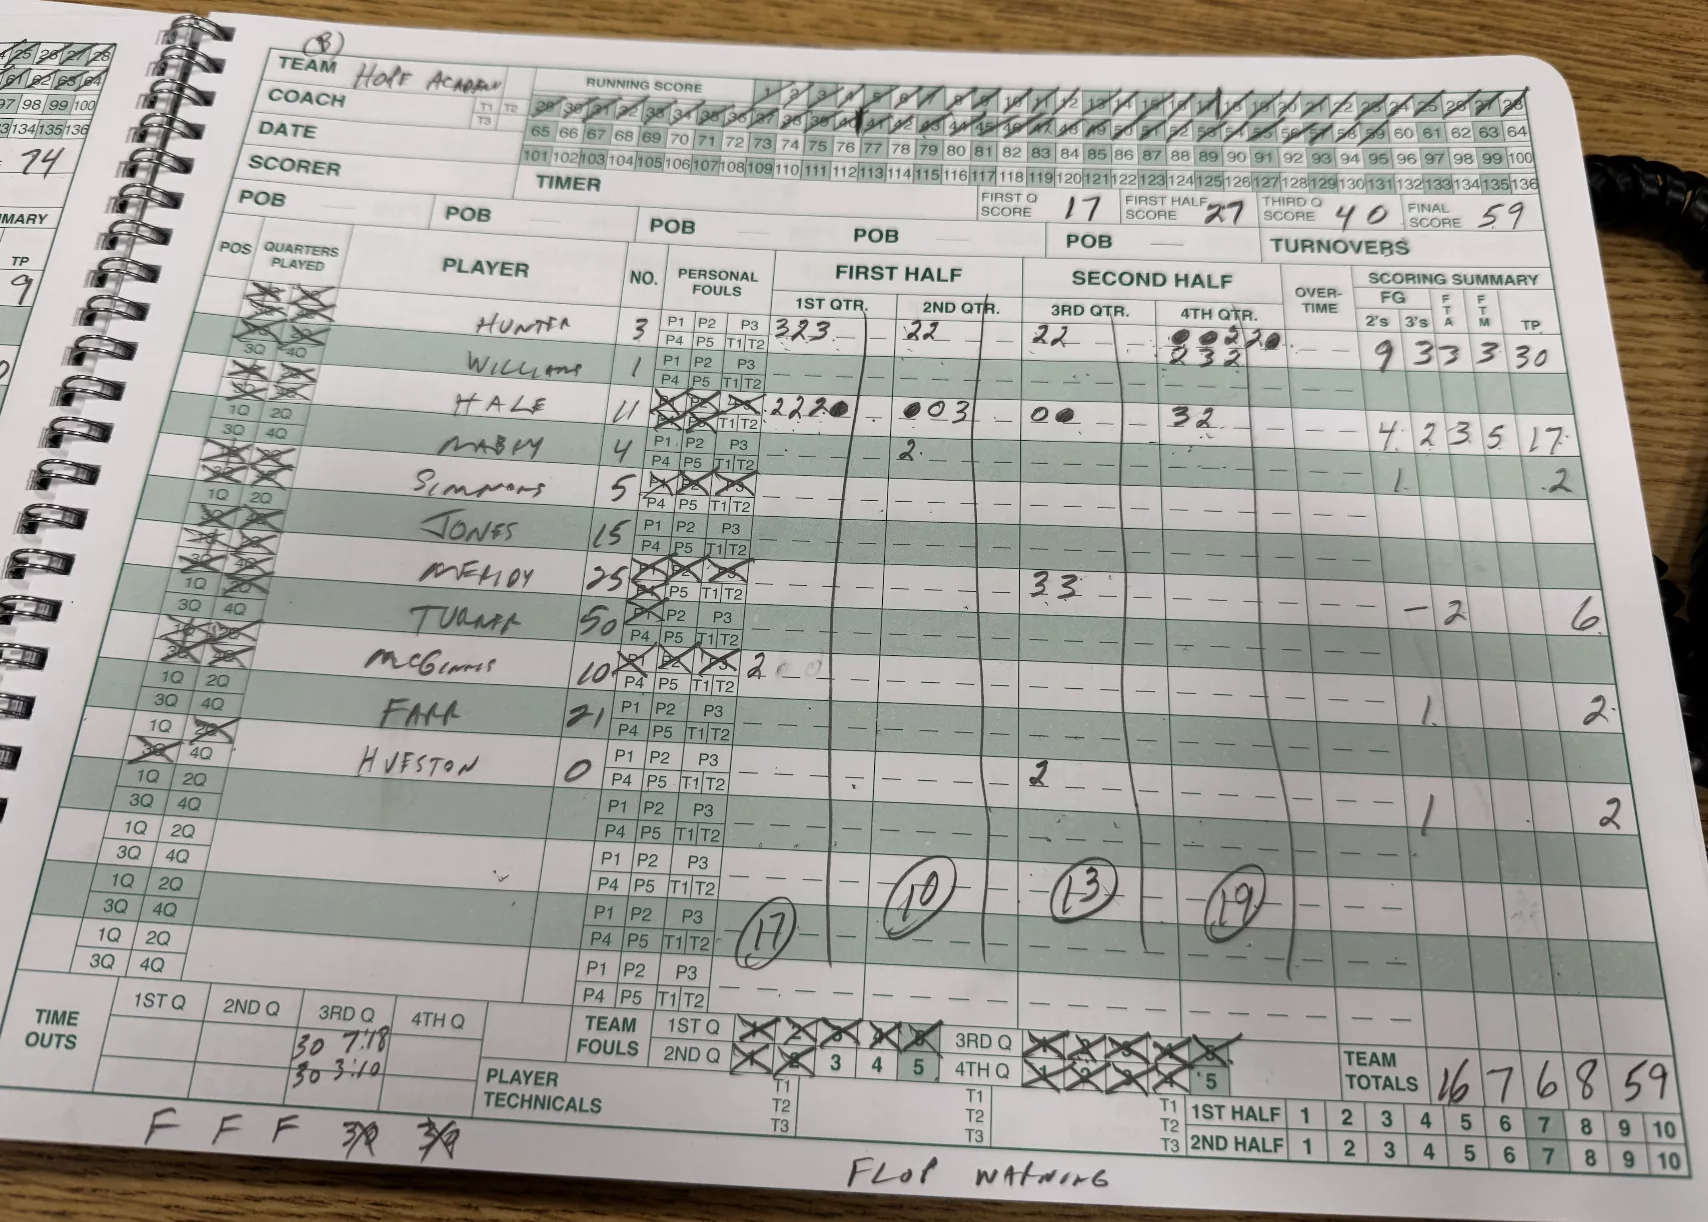 (B)
TEAM HOPE ACADEMY
COACH T1 T2 T3
DATE
SCORER
TIMER
RUNNING SCORE 1 2 3 4 5 6 7 8 9 10 11 12 13 14 15 16 17 18 19 20 21 22 23 24 25 26 27 28
29 30 31 32 33 34 35 36 37 38 39 40 41 42 43 44 45 46 47 48 49 50 51 52 53 54 55 56 57 58 59 60 61 62 63 64
65 66 67 68 69 70 71 72 73 74 75 76 77 78 79 80 81 82 83 84 85 86 87 88 89 90 91 92 93 94 95 96 97 98 99 100
101 102 103 104 105 106 107 108 109 110 111 112 113 114 115 116 117 118 119 120 121 122 123 124 125 126 127 128 129 130 131 132 133 134 135 136
FIRST Q SCORE 17 FIRST HALF SCORE 27 THIRD Q SCORE 40 FINAL SCORE 59
POB POB POB POB POB TURNOVERS
POS QUARTERS PLAYED PLAYER NO. PERSONAL FOULS FIRST HALF SECOND HALF OVER-TIME SCORING SUMMARY
1ST QTR. 2ND QTR. 3RD QTR. 4TH QTR. FG 2's 3's FTA FTM TP
HUNTER 3 P1 P2 P3 P4 P5 T1 T2 323 22 22 232 9 3 3 3 30
WILLIAMS 1 P1 P2 P3 P4 P5 T1 T2
HALE 11 T1 T2 222 03 32 4 2 3 5 17
MABRY 4 P1 P2 P3 P4 P5 T1 T2 2 1 2
SIMMONS 5 P4 P5 T1 T2
JONES 15 P1 P2 P3 P4 P5 T1 T2
25 P5 T1 T2 33 – 2 6
TURNER 50 P1 P2 P3 P4 P5 T1 T2
McGINNIS 10 P4 P5 T1 T2 2 1 2
FARR 21 P1 P2 P3 P4 P5 T1 T2
HVESTON 0 P1 P2 P3 P4 P5 T1 T2 2 1 2
1Q 2Q 3Q 4Q P1 P2 P3 P4 P5 T1 T2
1Q 2Q 3Q 4Q P1 P2 P3 P4 P5 T1 T2
1Q 2Q 3Q 4Q P1 P2 P3 P4 P5 T1 T2
1Q 2Q 3Q 4Q P1 P2 P3 P4 P5 T1 T2
17 10 13 19
TIME OUTS 1ST Q 2ND Q 3RD Q 4TH Q
30 7:18
30 3:10
TEAM FOULS 1ST Q 1 2 3 4 5 3RD Q 1 2 3 4 5
2ND Q 1 2 3 4 5 4TH Q 1 2 3 4 5
TEAM TOTALS 16 7 6 8 59
PLAYER TECHNICALS T1 T2 T3 T1 T2 T3 T1 T2 T3
1ST HALF 1 2 3 4 5 6 7 8 9 10
2ND HALF 1 2 3 4 5 6 7 8 9 10
F F F 30 30
FLOP WARNING
25 26 27 28
61 62 63 64
97 98 99 100
134 135 136
74
MARY
TP
9